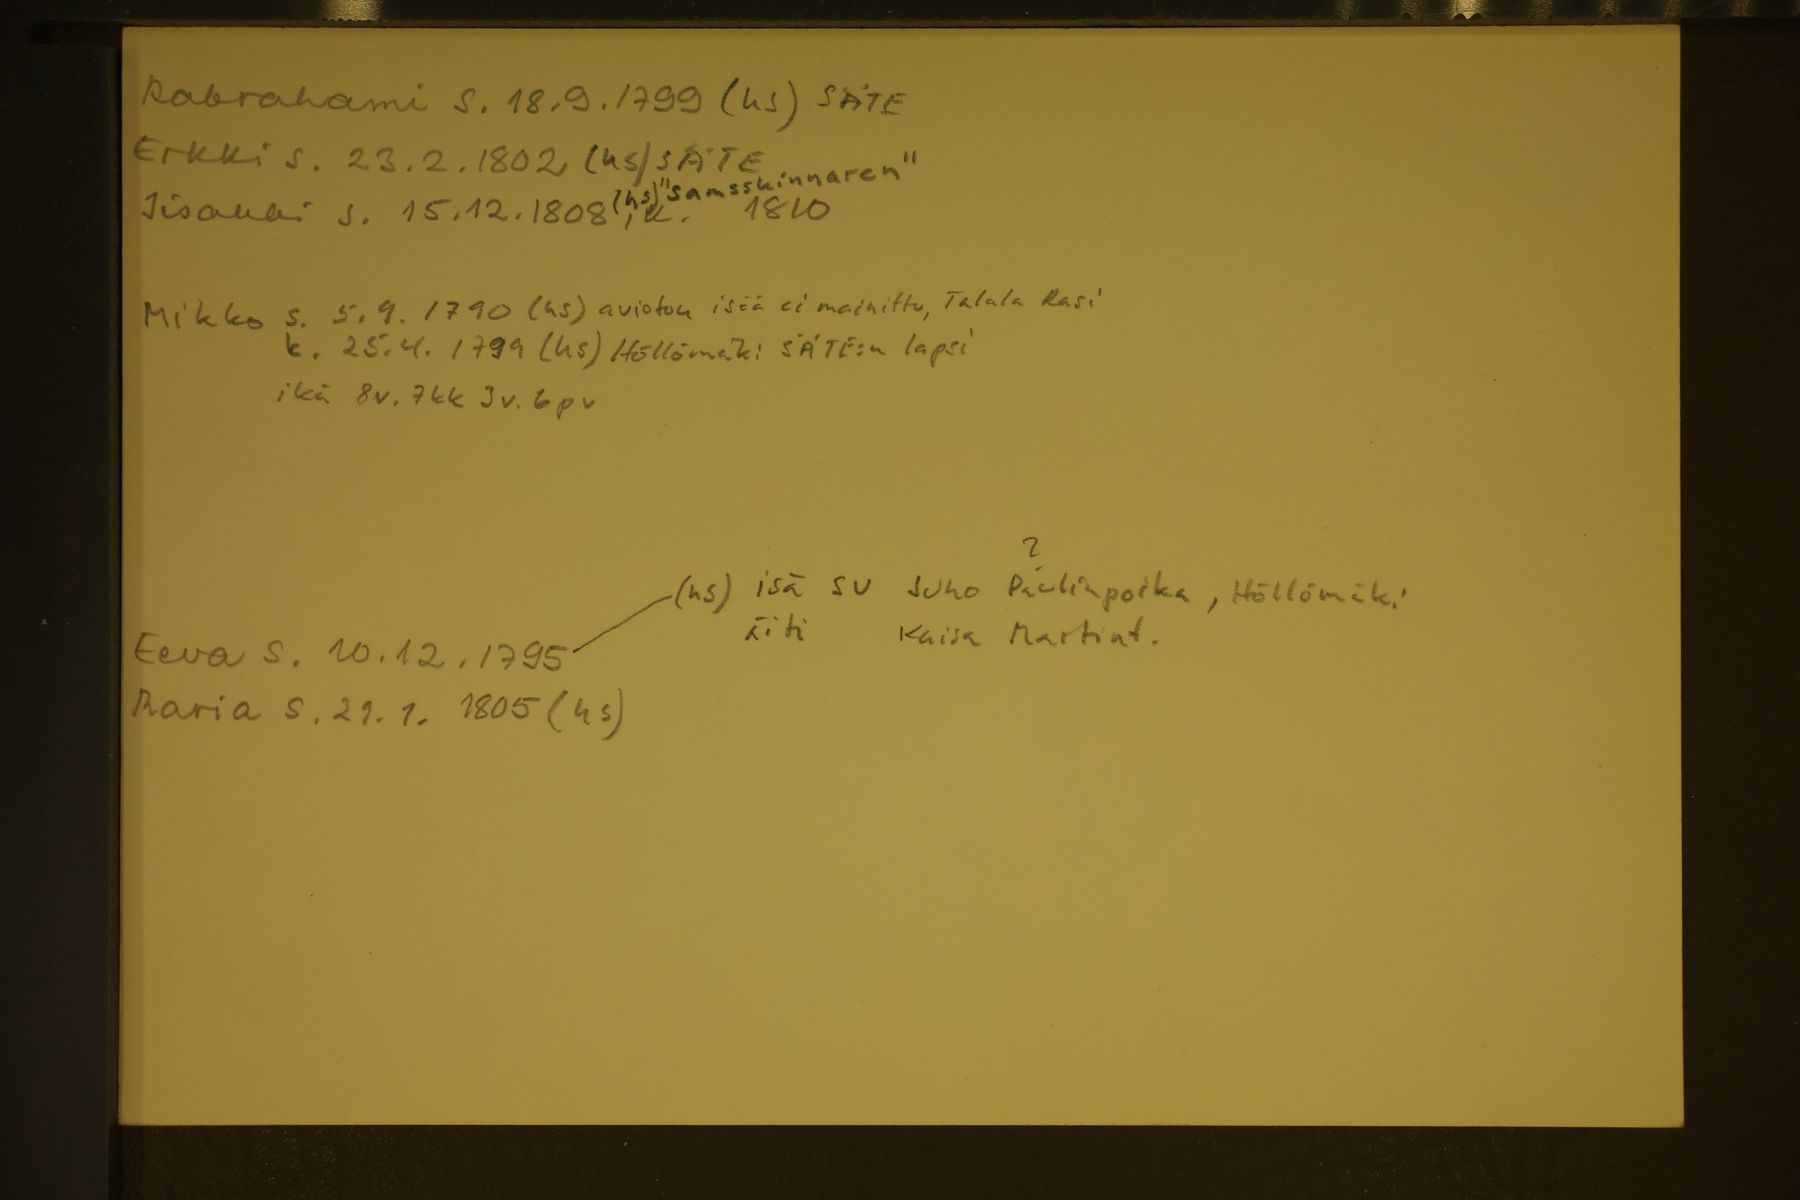 Aabrahami s. 18.9.1799 (hs) SÄTE
Erkki s. 23.2.1802 (hs) SÄTE
Iisakki s. 15.12.1808 (hs) "samsskinnaren", k. 1810
Mikko s. 5.9. 1790 (hs) avioton isää ei mainittu, Talala Rasi
k. 25.4. 1799 (hs) Höllömäki SÄTE:n lapsi
ikä 8v. 7kk 3v. 6pv
?
(hs) isä SV Juho Paulinpoika, Höllömäki
äiti Kaisa Martint.
Eeva s. 10.12.1795
Maria s. 21.1. 1805 (hs)